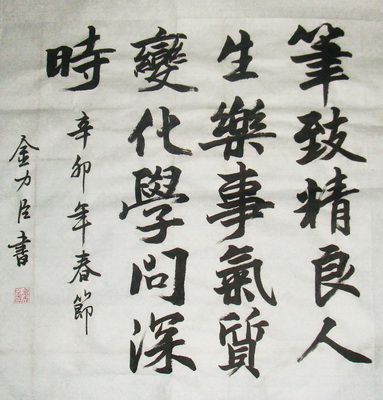 筆致精良人
生樂事氣質
變化學問深
時
辛卯年春節
金力臣書